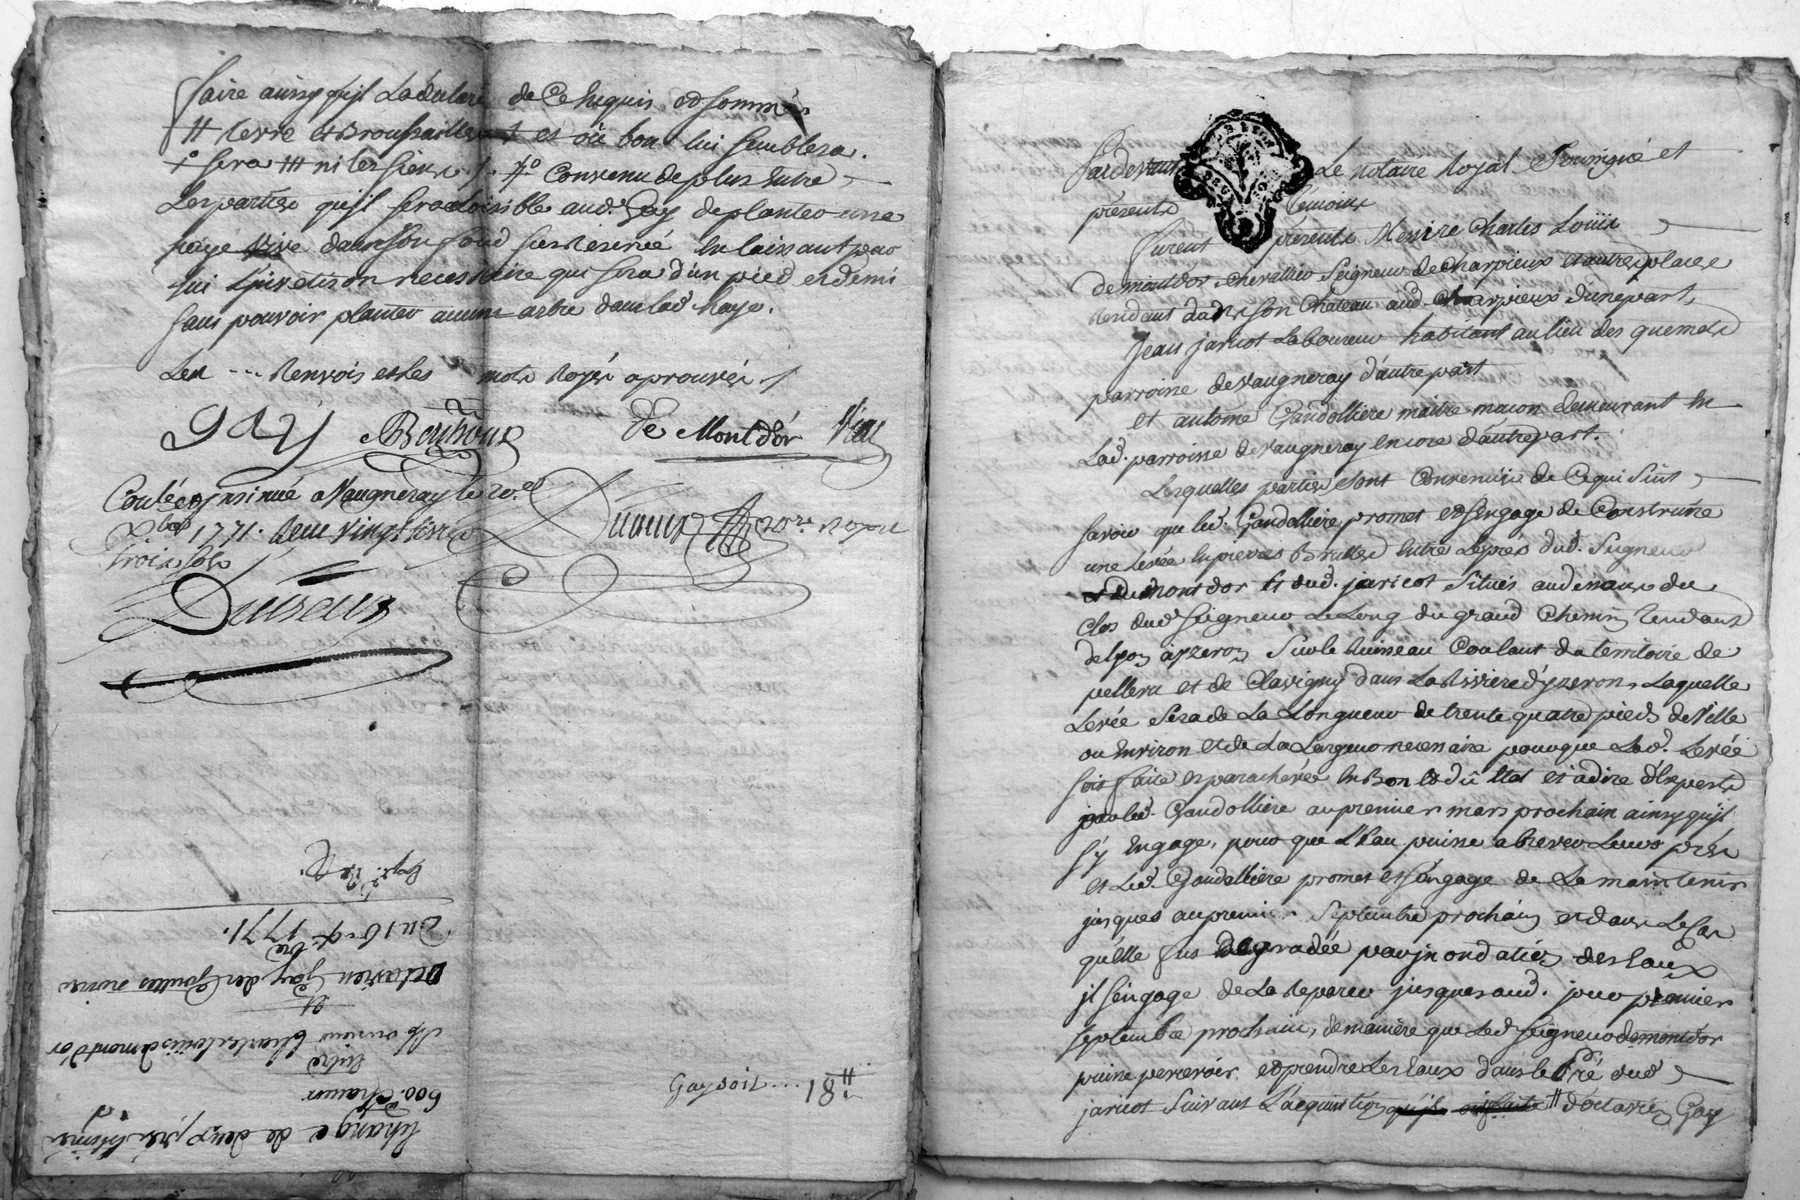 faire ainsy qu'il La déclaré de Ce Requis et sommé
# terre et Broussailles et où bon lui semblera.
1° sera ### ni les siens /. 4° Convenu de plus Entre
Les parties qu'il sera Loisible aud. Gay de planter une
haye vive dans son fond sus Mené En laissant par
lui necessaire qui sera d'un pied et demi
sans pouvoir planter aucuns arbre dans lad. haye.
Les --- Renvois et Les mots Royés aprouvés /
gay De Montdor
Controlé et insinué a Vaugneray le 20.
Xbre 1771. Reçu vingt livres
trois sols
Royal
Par devant Le notaire Royal Soussigné et
présents Témoins
furent présents Messire Charles Louis
de montdor chevallier Seigneur de Charpieux et autres places
Rendant dans son chateau aud. Charpieux d'une part,
Jean jaricot Laboureur habitant au lieu des quemets
parroisse de Vaugneray d'autre part
et antoine Gaudollière maitre macon demeurant En
Lad. parroisse de Vaugneray encore d'autre part.
Lesquelles parties sont Convenües de Ce qui Suit
savoir que led. Gaudollière promet et s'engage de Construire
une Levée En pierres Entre Le prés dud. Seigneur
de mont dor Et dud. jaricot Situés au dessous du
Clos dud. seigneur Le Long du grand Chemin Tendant
de Lyon à yzeron, Sur le Ruisseau Coulant du territoire de
pellera et de Clavigny dans La Rivière d'yzeron, Laquelle
Levée Sera de La Longueur de trente quatre pieds de Ville
ou Environ et de La Largeur necessaire pour que Lad. Levée
soit faite et parachevée En Bon Et dû Etat et à dire d'Experts
par led. Gaudollière au premier mars prochain ainsy qu'il
s'y Engage, pour que L'Eau puisse abrever Leurs prés
et Led. Gaudollière promet et s'engage de La maintenir
jusques au premier Septembre prochain, et dans Le Cas
qu'Elle fus degradée par jnondation des Eaux
jl s'engage de La Reparer jusques aud. jour premier
septembre prochain, de manière que Led. seigneur de montdor
puisse percevoir et prendre Les Eaux dans le Pré dud.
jaricot Suivant L'acquisition # d'octavien Gay
# 18 1
Gay doit ....
Echange de deux prés Estimés
600. Chacun
Entre
Mr Charles Louis de montd'or
et
octavien Gay des Gouttes
Du 16 Xbre 1771.